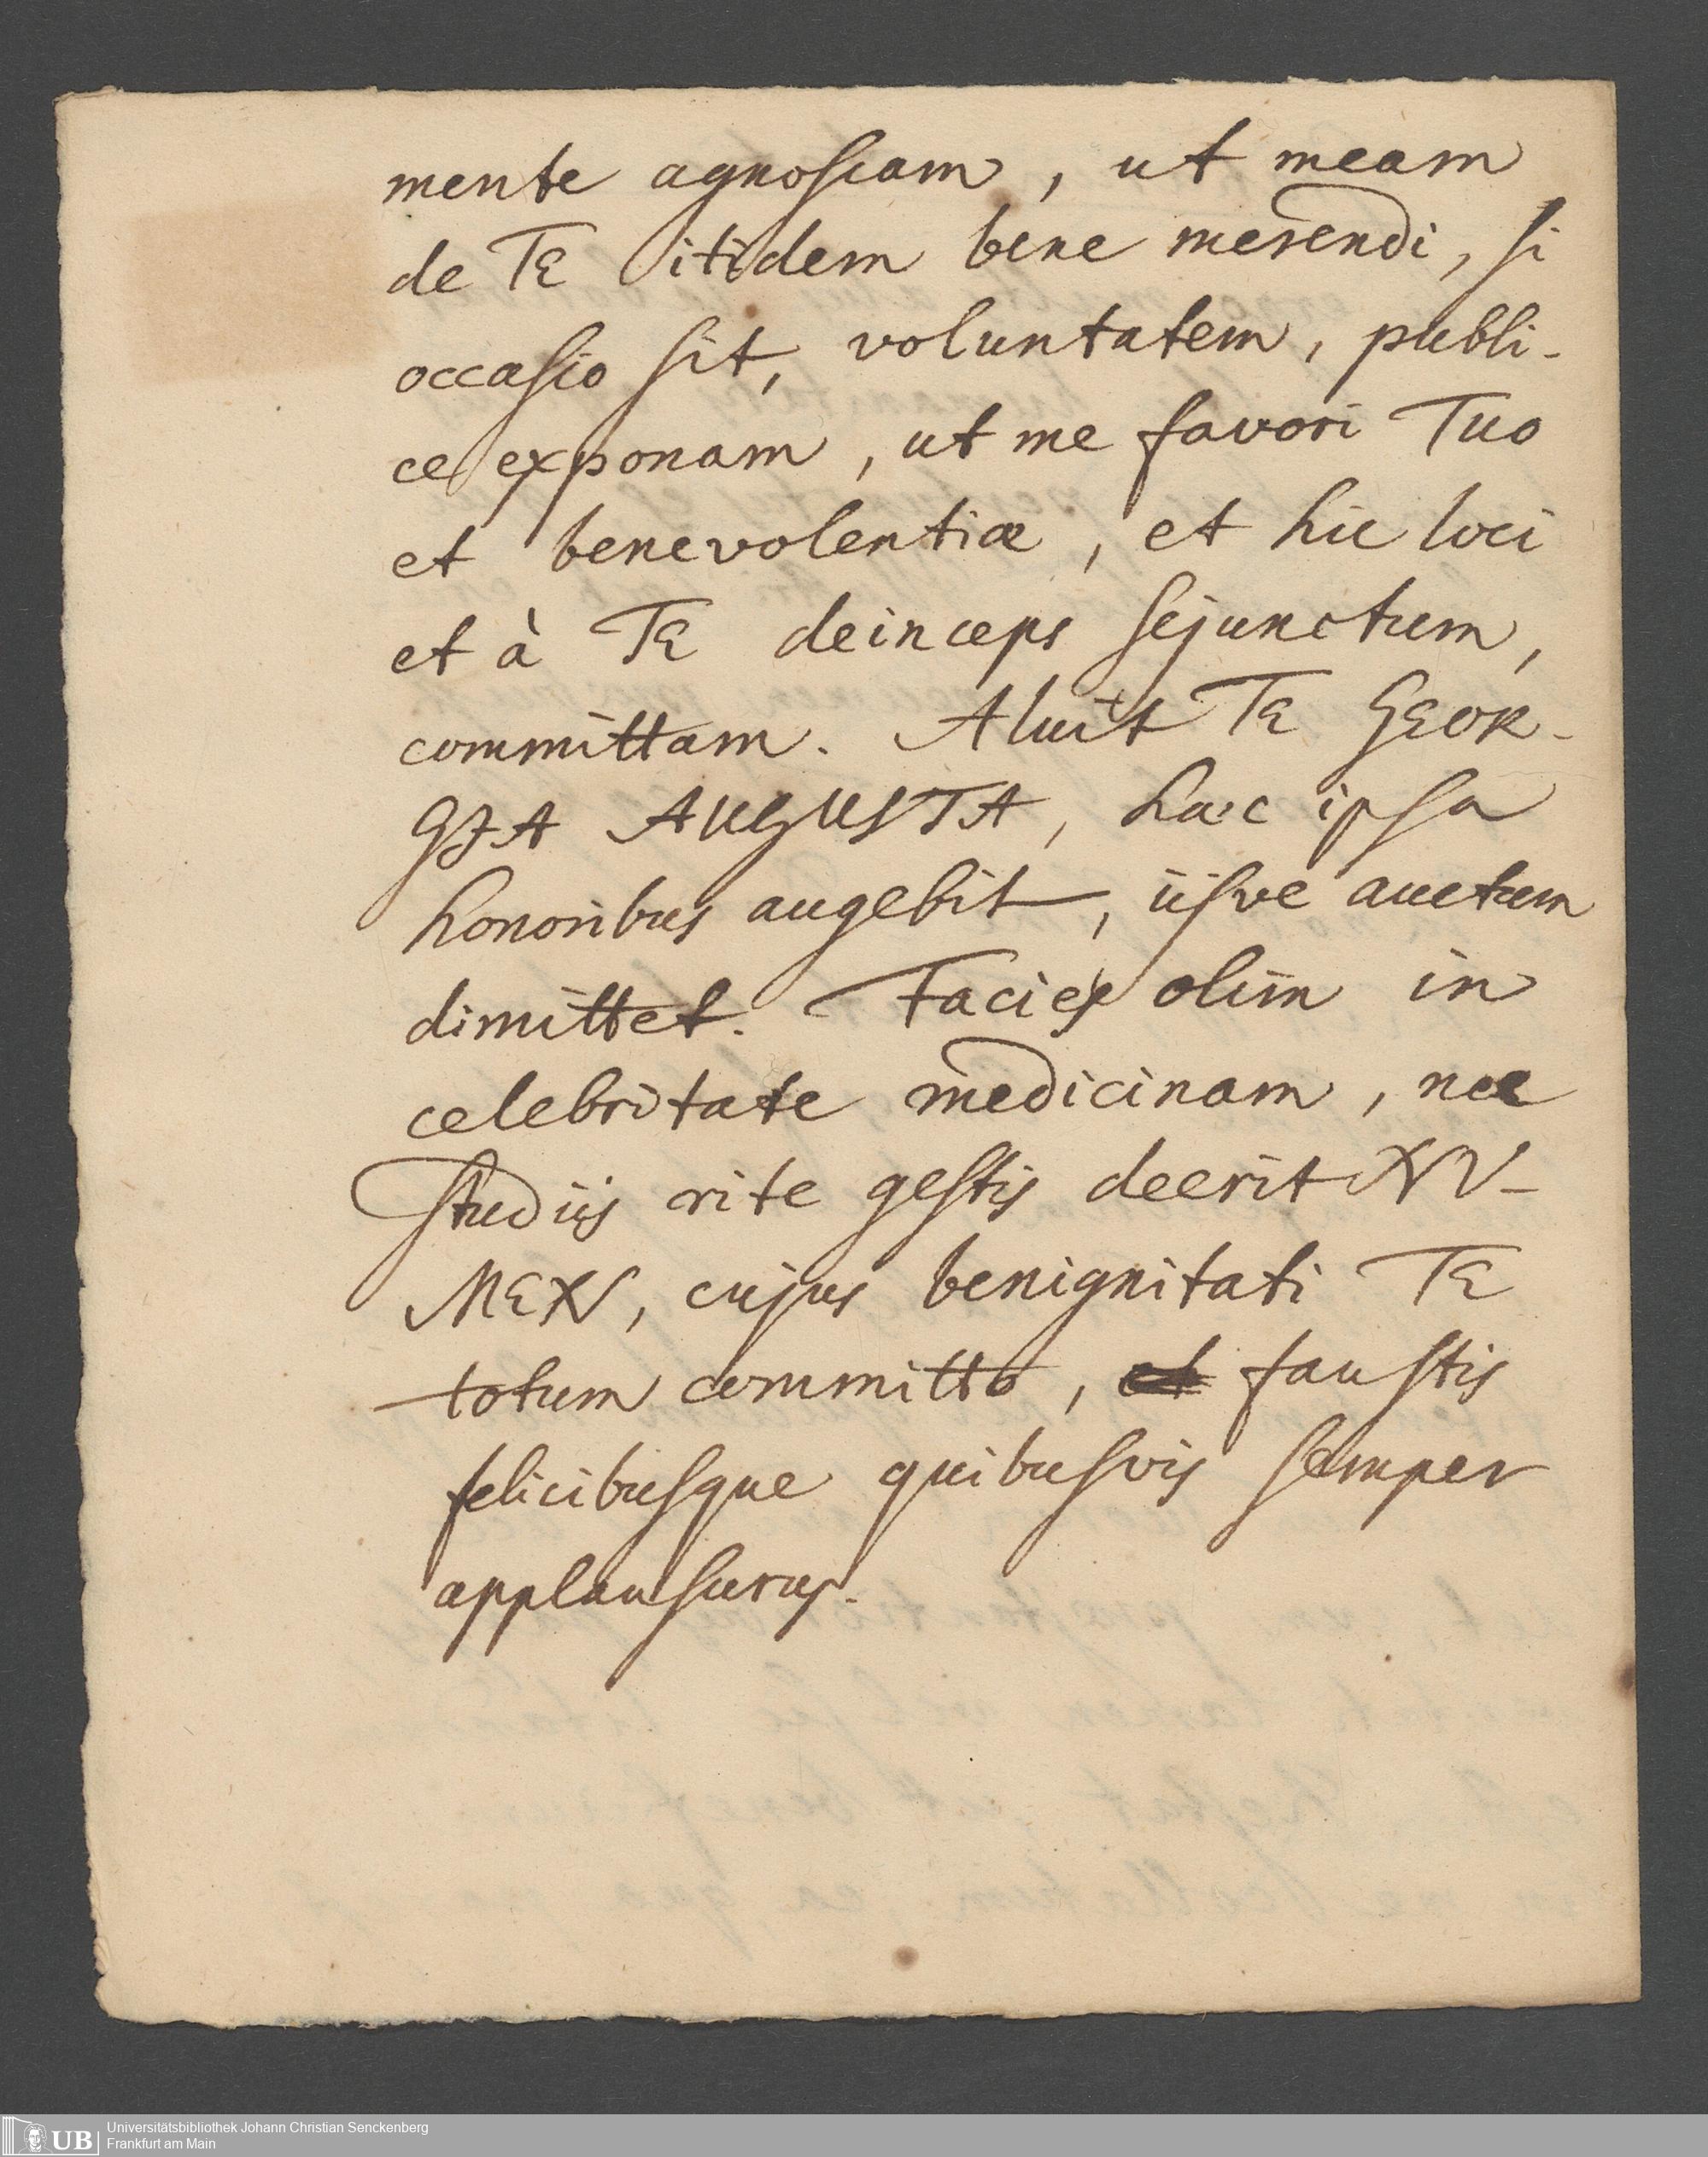 mente agnoscam, ut meam
de TE itidem bene merendi, si
occasio sit, voluntatem, publi-
ce exponam, ut me favori Tuo
et benevolentiæ, et hic loci
et à TE deinceps sejunctum,
committam. Aluit TE GEOR-
GIA AUGUSTA, hæc ipsa
honoribus augebit, iisve auctum
dimittet. Facies olim in
celebritate medicinam, nec
studiis rite gestis deerit NU-
MEN, cujus benignitati TE
totum committo, et faustis
felicibusque quibusvis semper
applausurus.
UB
Universitätsbibliothek Johann Christian Senckenberg
Frankfurt am Main